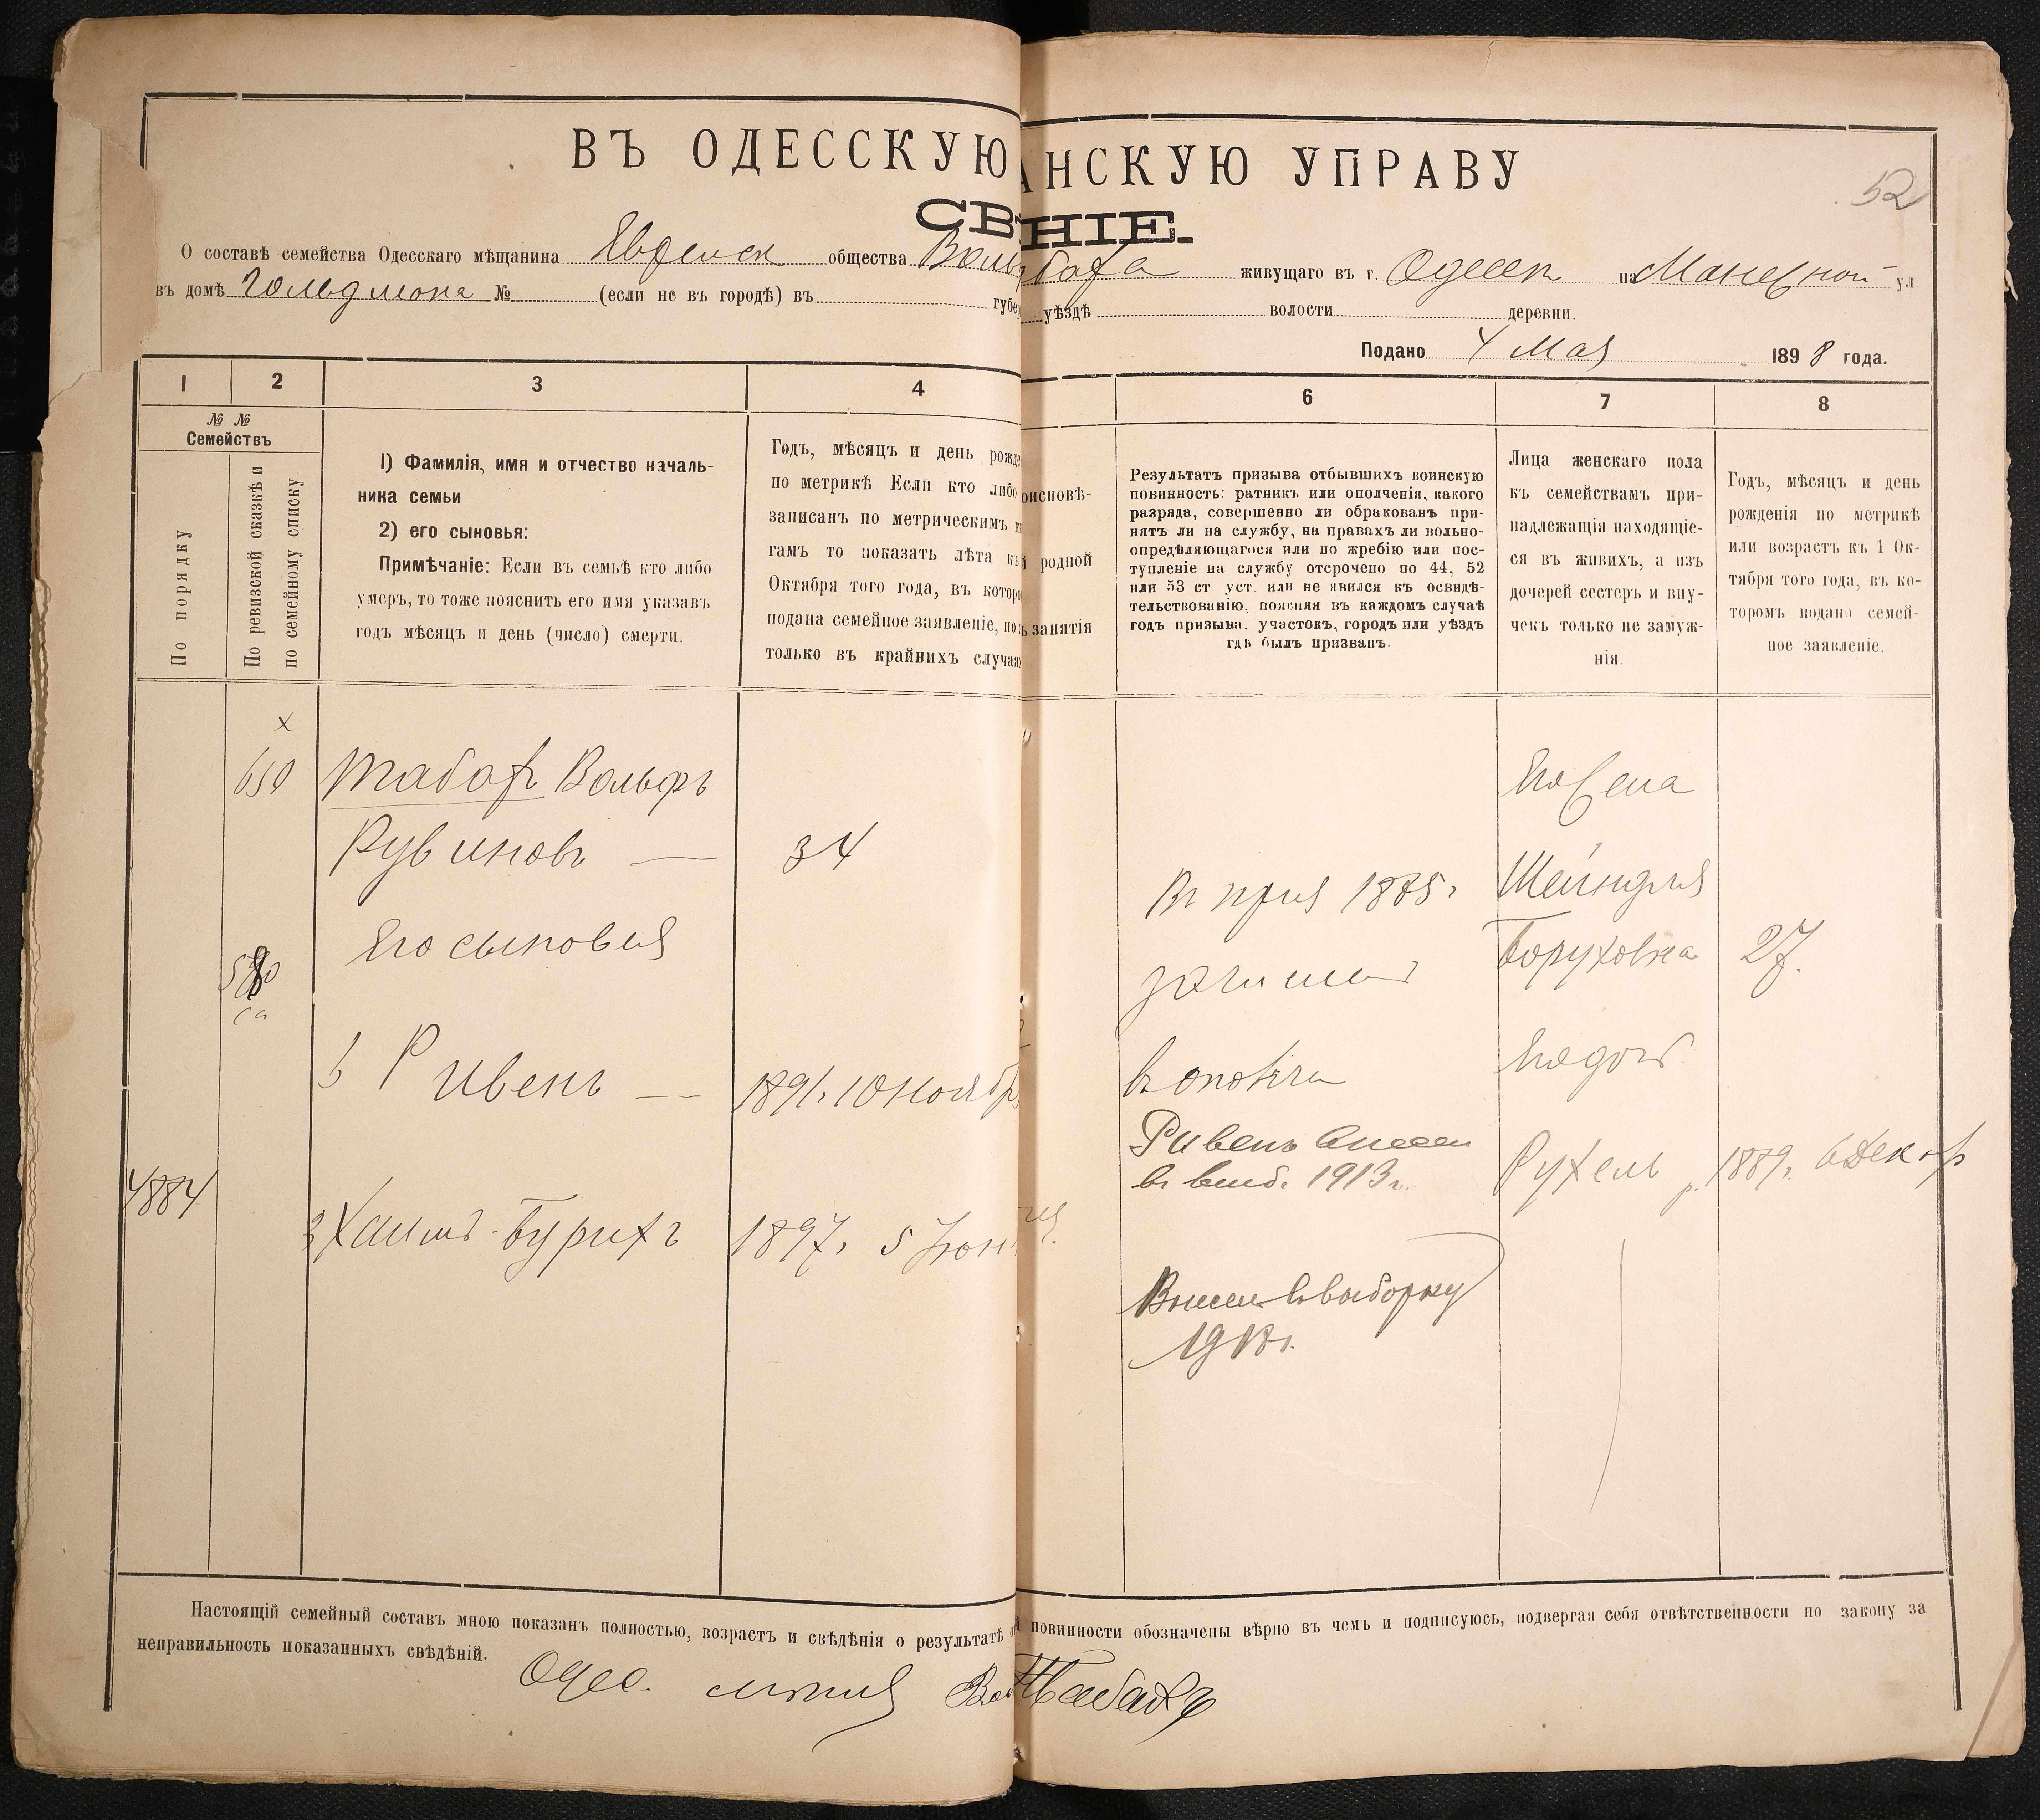 ВЪ ОДЕССКУЮ АНСКУЮ УПРАВУ
52
СВ НІЕ.
О составѣ семейства Одесскаго мѣщанина Еврейск общества Воль бара живущаго въ г. Одессѣ на Манежной ул
въ домѣ Гольдмана № (если не въ городѣ) въ губе уѣздѣ волости деревни.
Подано 4 Мая 1898 года.
1 2 3 4 6 7 8
№ №
Семействъ
По порядку
По ревизской сказкѣ и
по семейному списку
1) Фамилія, имя и отчество началь-
ника семьи
2) его сыновья:
Примѣчаніе: Если въ семьѣ кто либо
умеръ, то тоже пояснить его имя указавъ
годъ мѣсяцъ и день (число) смерти.
Годъ, мѣсяцъ и день рожде
по метрикѣ Если кто либо
записанъ по метрическимъ к
гамъ то показать лѣта къ
Октября того года, въ которо
подана семейное заявленіе, но
только въ крайнихъ случая
оисповѣ-
й родной
ь занятія
Результатъ призыва отбывшихъ воинскую
повинность: ратникъ или ополченія, какого
разряда, совершенно ли обракованъ при-
нятъ ли на службу, на правахъ ли вольно-
опредѣляющагося или по жребію или пос-
тупленіе на службу отсрочено по 44, 52
или 53 ст уст. или не явился къ освидѣ-
тельствованію, поясняя въ каждомъ случаѣ
годъ призыва, участокъ, городъ или уѣздъ
гдѣ былъ призванъ.
Лица женскаго пола
къ семействамъ при-
надлежащія находящіе-
ся въ живихъ, а изъ
дочерей сестеръ и вну-
чекъ только не замуж-
нія.
Годъ, мѣсяцъ и день
рожденія по метрикѣ
или возрастъ къ 1 Ок-
тября того года, въ ко-
торомъ подано семей-
ное заявленіе.
х
650 Табаръ Вольфъ
Рувиновъ — 34
Его сыновья
Ривенъ — 1891. 10 Ноябр
4884
Хаимъ-Бурихъ 1897. 5 Іюн я.
Въ приз 1885г
зачислен
в ополче
Ривенъ внесен
в выб. 1913г.
Внесен в выборку
Его жена
Шейндля
Боруховна 27.
Его доч.
Рухель р. 1889. 6 Декабр
Настоящій семейный составъ мною показанъ полностью, возрастъ и свѣдѣнія о результатѣ о й повинности обозначены вѣрно въ чемъ и подписуюсь, подвергая себя отвѣтственности по закону за
неправильность показанныхъ свѣдѣній.
Одес.